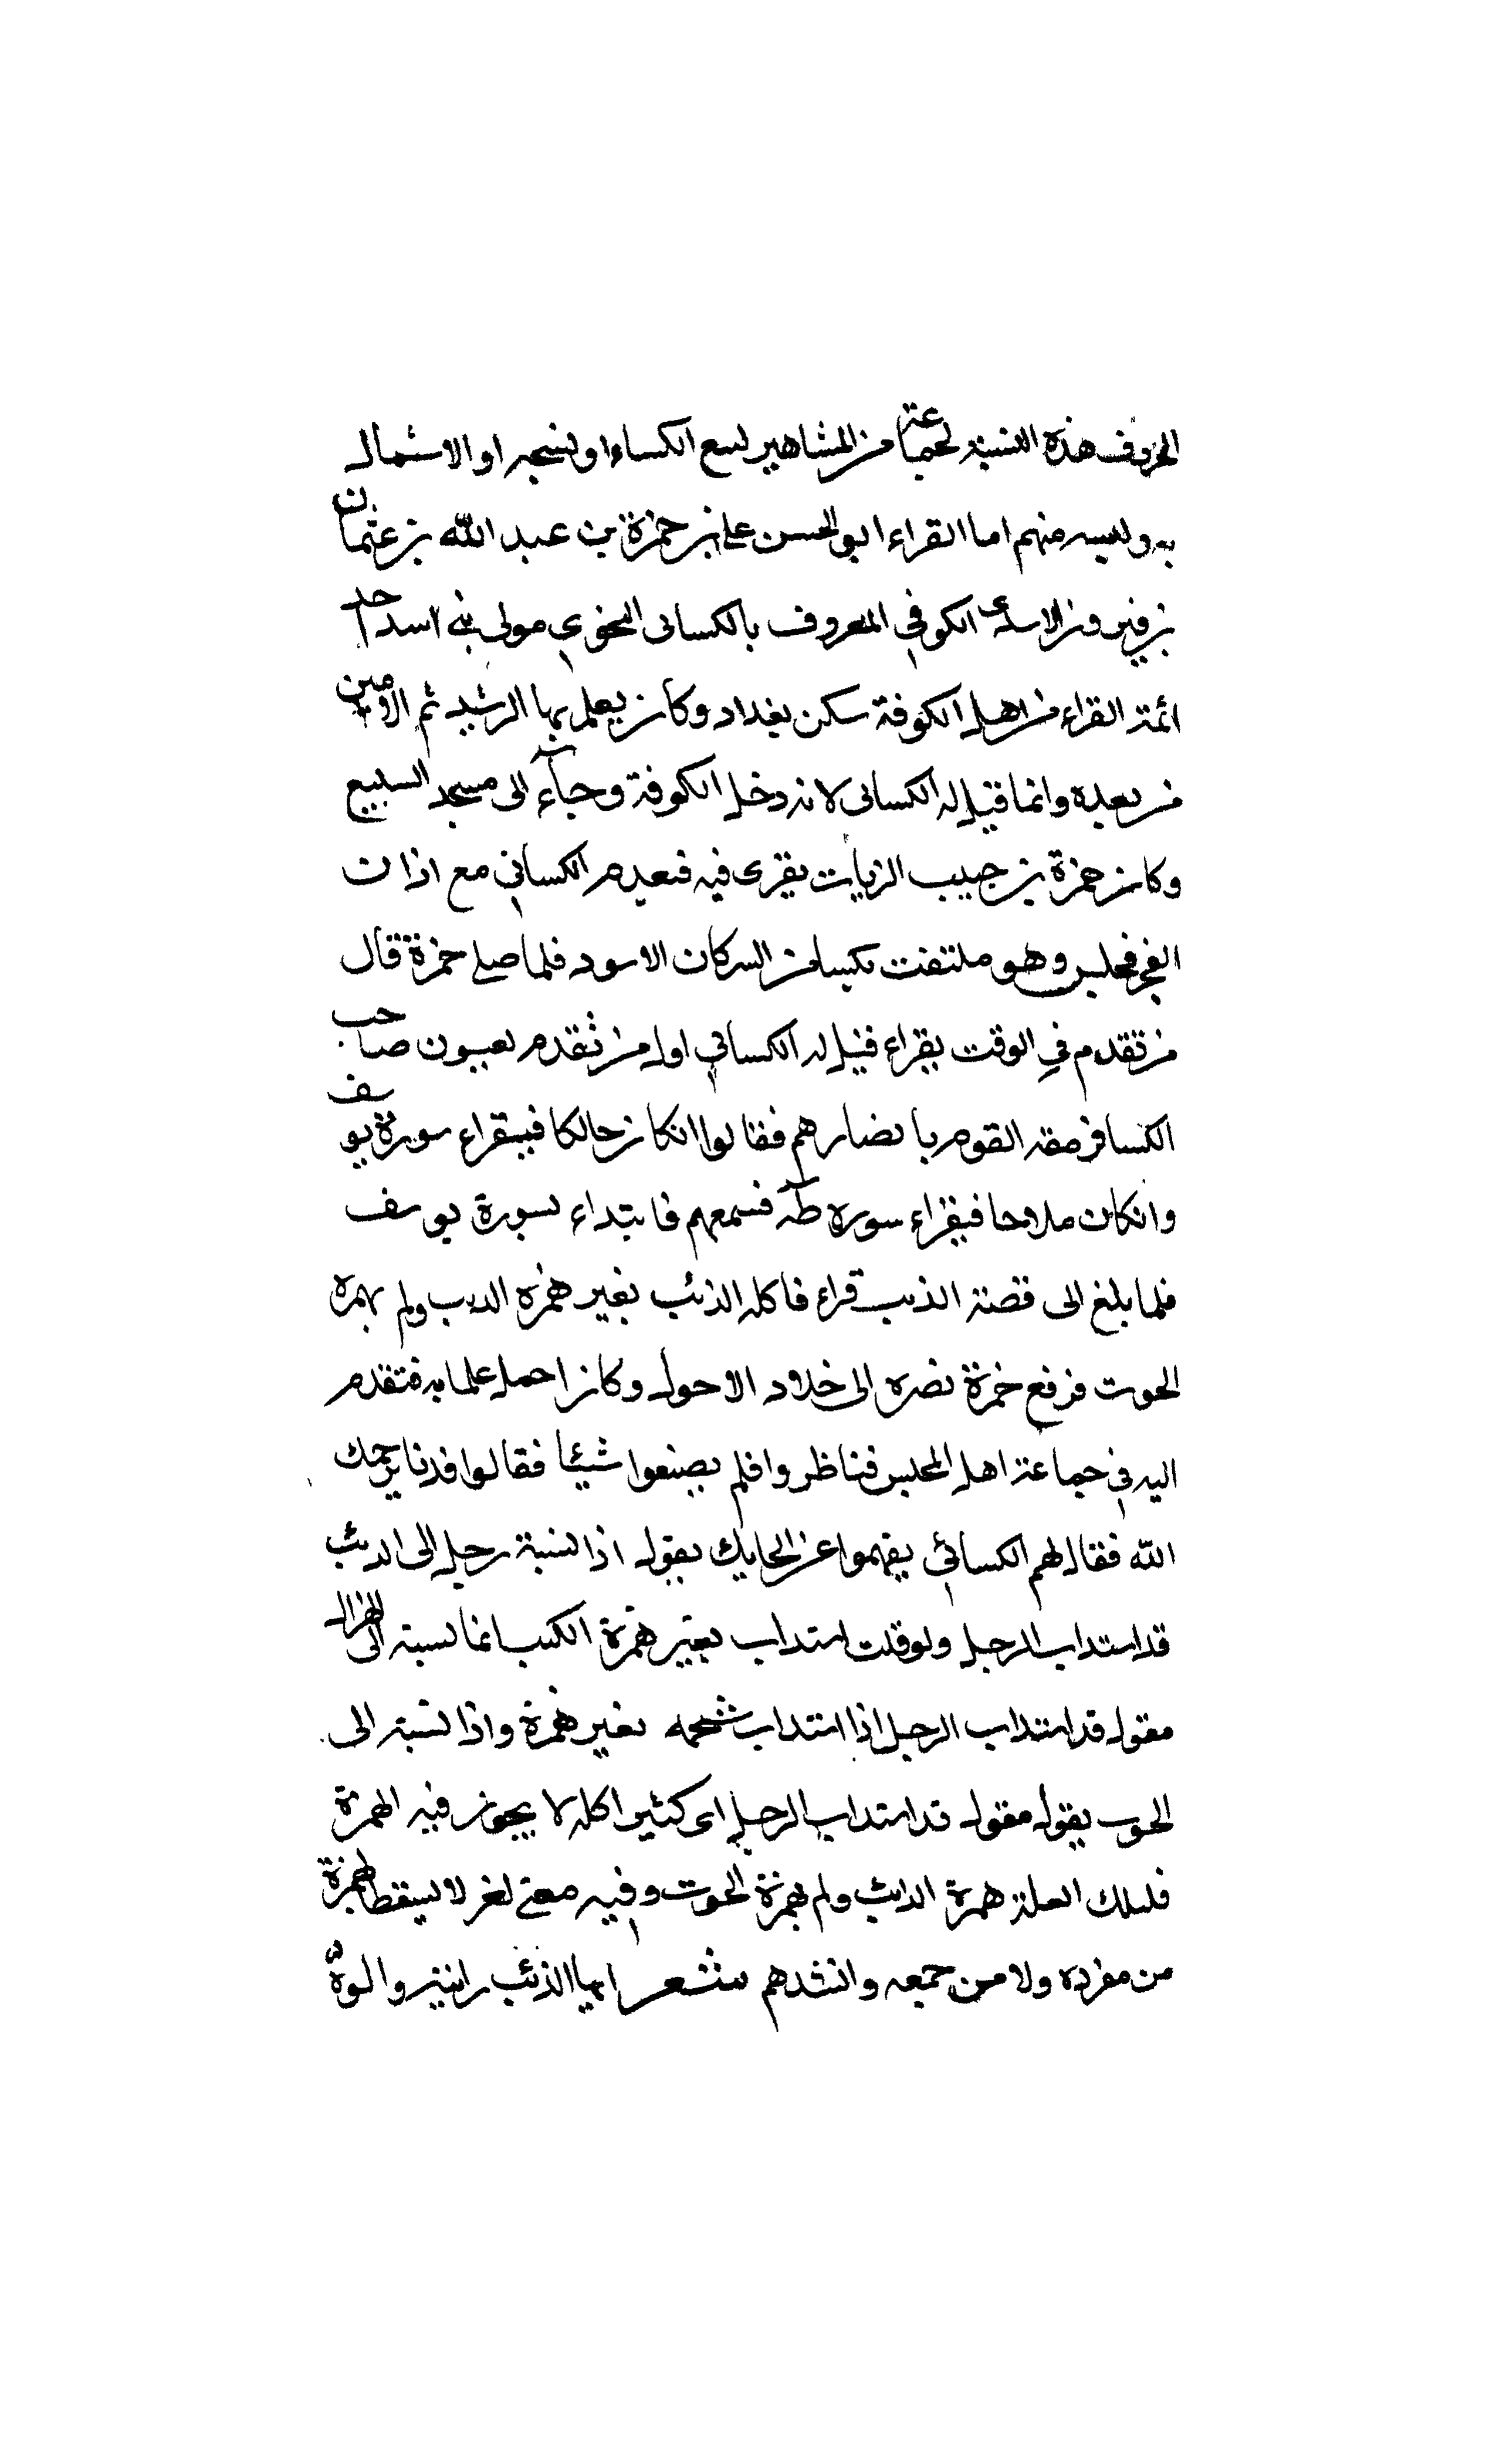 الحروف هذه النسبة لجماعة من المشاهير لبيع الكساء او نسجه او الاشتمال
به ولبسه منهم امام القراء ابو الحسن علي بن حمزة بن عبد الله بن عثمان
بن فيروز الاسدى الكوفي المعروف بالكسائى النحوي مولى بني اسد احد
ائمة القراء من اهل الكوفة سكن بغداد وكان يعلم بها الرشيد ثم الامين
من بعده وانما قيل له الكسائى لانه دخل الكوفة وجآء الى مسجد السبيع
وكان حمزة بن حبيب الزيات يقرى فيه فتقدم الكسائي مع اذان
الفجر فجلس وهو ملتفت بكسا من البركان الاسود فلما صلى حمزة قال
من تقدم في الوقت يقراء قيل له الكسائي اول من تقدم يعنون صاحب
الكسا فرمقه القوم بابصارهم فقالوا انكان حائكا فسيقراء سورة يوسف
وانكان ملاحا فيقراء سورة طه فسمعهم فابتداء بسورة يوسف
فلما بلغ الى قصة الذيب قراء فاكله الذئب بغير همزة الذيب ولم يهمزه
الحوت فرفع حمزة بصره الى خلاد الاحول وكان احمل علمابه فتقدم
اليه في جماعة اهل المجلس فناظروا فلم يصنعوا شيئا فقالوا فدنا يرحمك
الله فقال لهم الكسائي يفهموا عن الحايك يقول اذا نسبة رجل الى الذئب
قد استداب الرجل ولو قلت استداب بغير همزة الكنب انما نسبة الى الهزال
مقول قد استذاب الرجل اذا استداب شحمه بغير همزة واذا نسبة الى
الحوب يقول مقول قد استداب الرجل اى كثير اكله لا يجوز فيه الهمزة
فلتلك العلة همزة الذئب ولم يهمزة الحوت وفيه معنى لغر لا يسقط الهمزة
من مفرده ولا من جمعه وانشدهم شعر ايها الذئب وابنيه وابوه